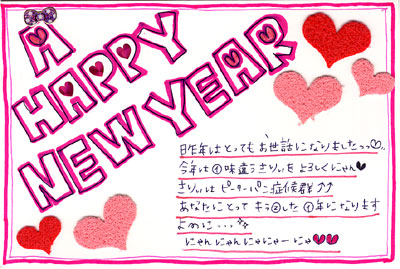 A
HAPPY
NEW YEAR
昨年はとってもお世話になりましたっっ♡。
今年は①味違うきりぃをよろしくにゃん♥
きりぃはピーターパン症候群⇈
あなたにとってキラ②した①年になります
よぉに・・・✧
にゃんにゃんにゃにゃーにゃ♥♥